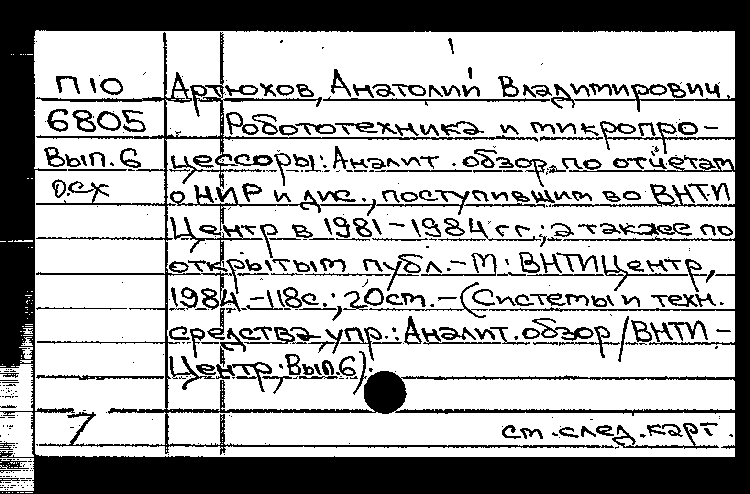 П10 Артюхов, Анатолий Владимирович.
6805 Робототехника и микропро-
Вып.6 цессоры: Аналит. обзор по отчетам
о НИР и дис., поступившим во ВНТИ
Центр в 1981-1984 гг.; а также по
открытым публ.-М: ВНТИЦентр,
1984.-118с.; 20см.-(Системы и техн.
средства упр.: Аналит. обзор/ВНТИ-
Центр; Вып.6).
7 см. след. карт.